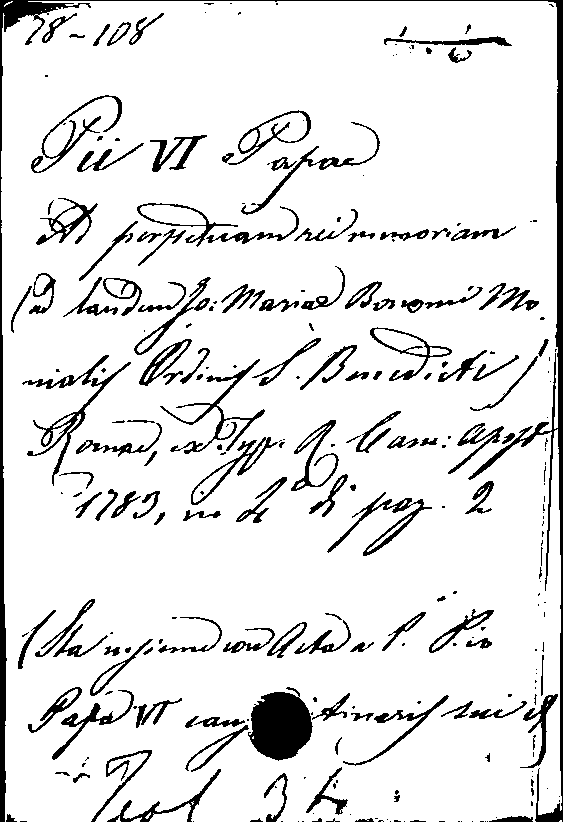 78-108
Pii VI Papae
Ad perpetuam rei memoriam
(ad laudem Jo: Mariae Bonomi Mo
nialis Ordinis S. Benedicti)
Romae, ex Typ. R. Cam: Apost
1783, in 4° di pag. 2
(Sta insieme con Acta a P. Pio
Papa VI itineris sui